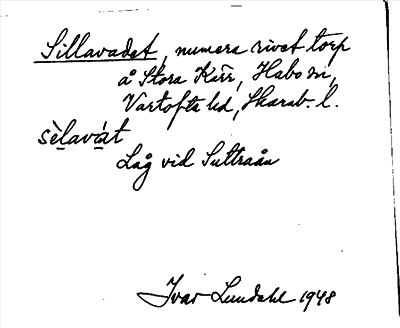 Sillavadet, numera rivet torp
å Stora Kärr, Habo sn,
Vartofta hd, Skarab. l.
sèlavát
Låg vid Sultraån
Ivar Lundahl 1948